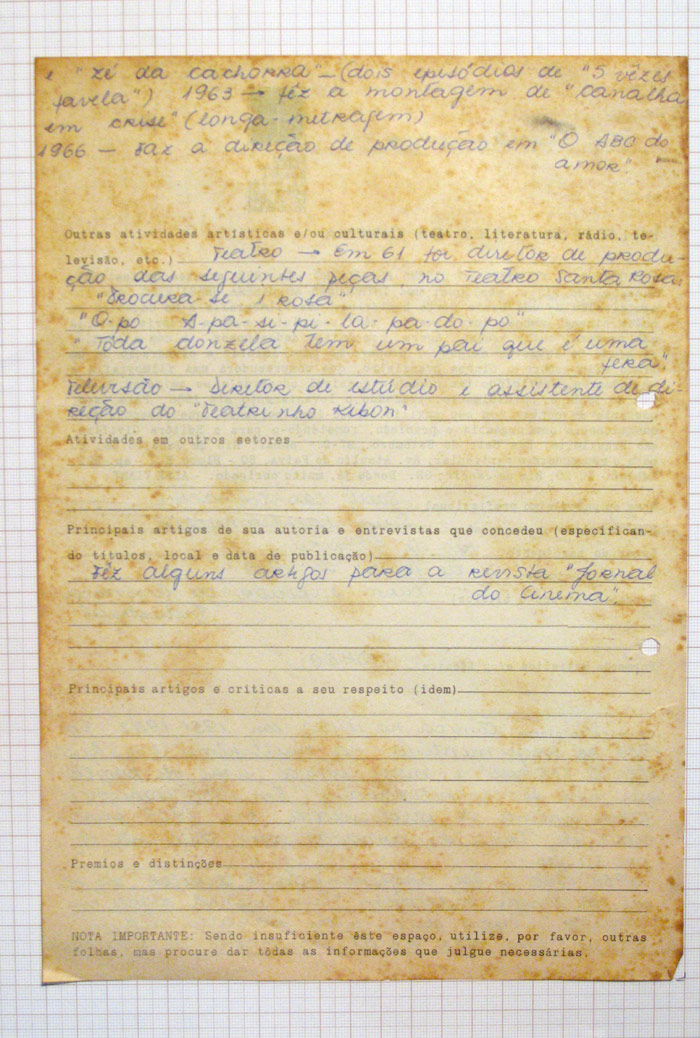 e "Zé da cachorra" — (dois episódios de "5 vêzes
favela") 1963 → fêz a montagem de "Canalha
em crise" (longa-metragem)
1966 — Faz a direção de produção em "O ABC do
amor".
Outras atividades artísticas e/ou culturais (teatro, literatura, rádio, te-
levisão, etc.) Teatro → Em 61 foi diretor de produ-
ção das seguintes peças, no Teatro Santa Rosa:
"Procura-se 1 rosa"
"O-po A-pa-si-pi-la-pa-do-po"
"Tôda donzela tem um pai que é uma
fera".
Televisão → Diretor de estúdio e assistente de di
reção do "Teatrinho Kibon"
Atividades em outros setores
Principais artigos de sua autoria e entrevistas que concedeu (especifican-
do títulos, local e data de publicação)
Fêz alguns artigos para a revista "Jornal
do Cinema".
Principais artigos e críticas a seu respeito (idem)
Premios e distinções
NOTA IMPORTANTE: Sendo insuficiente êste espaço, utilize, por favor, outras
folhas, mas procure dar tôdas as informações que julgue necessárias.